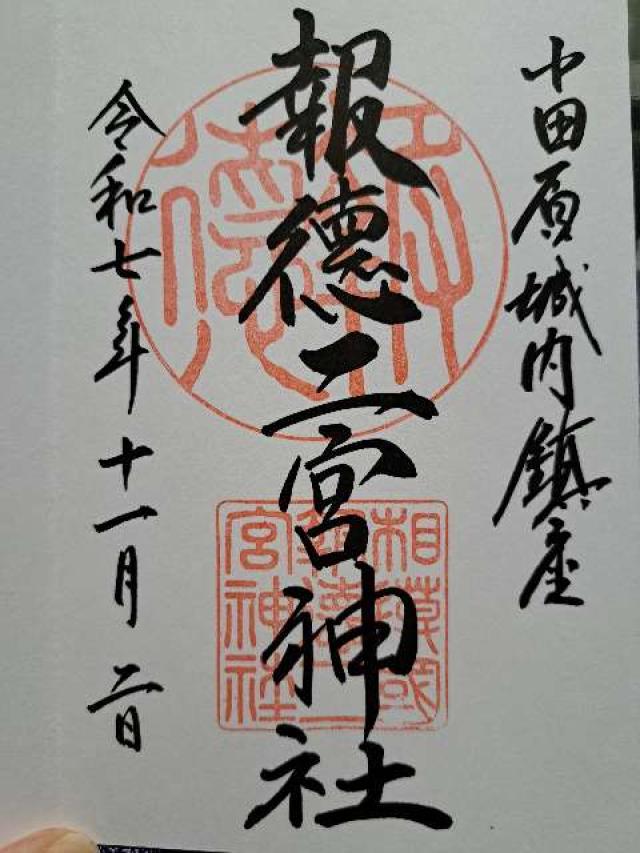 小田原城内鎮座
報徳二宮神社
令和七年十一月二日
報徳
相模國
報徳二
宮神社